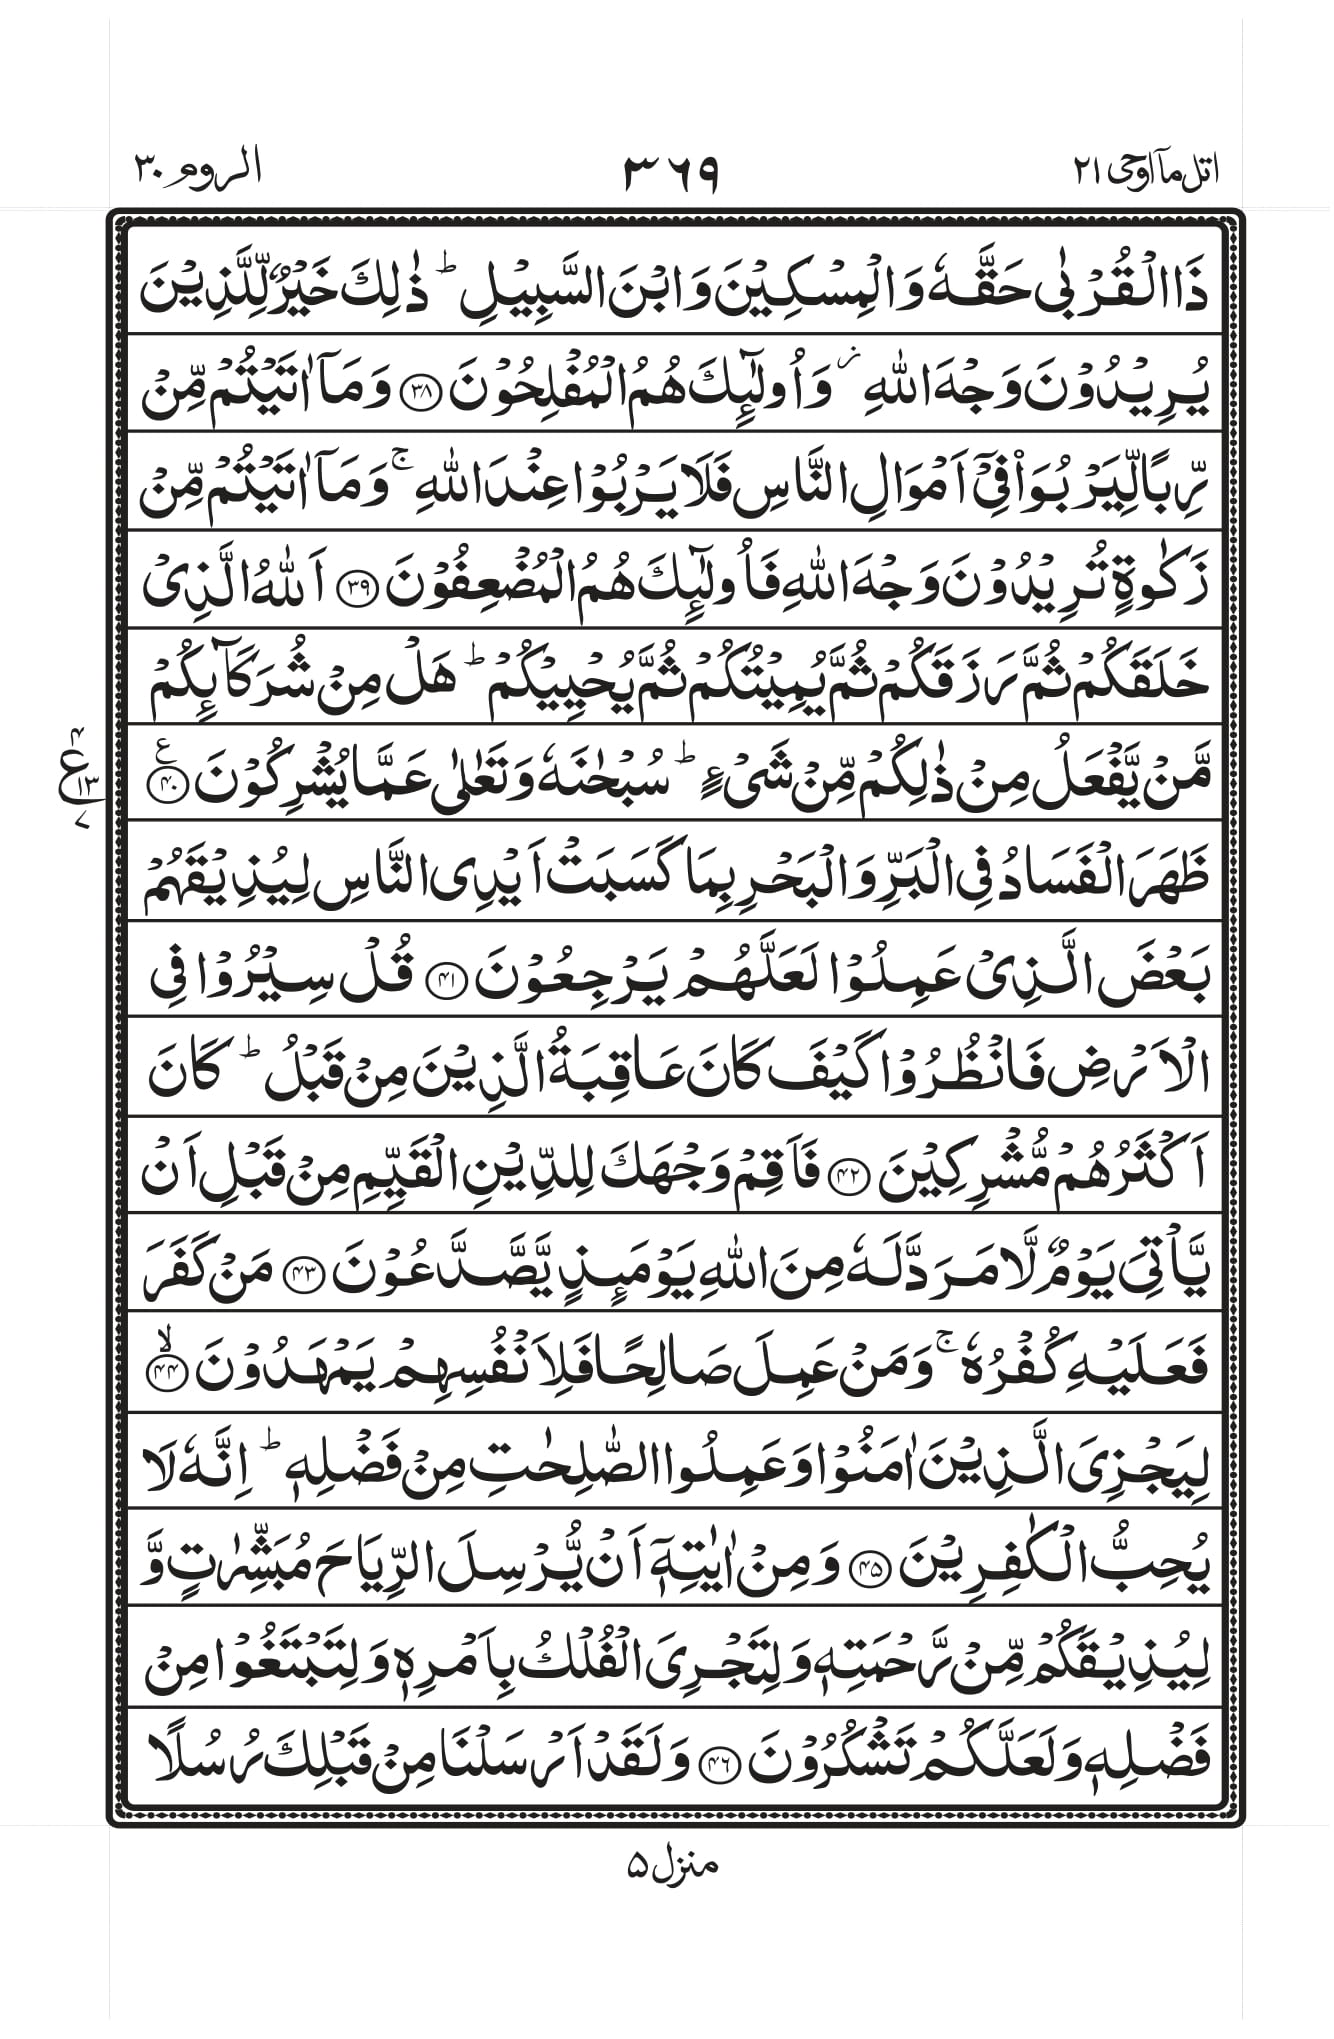 اتل مآ اوحی ۲۱ ۳۶۹ الروم ۳۰
ذَا الْقُرْبٰى حَقَّهٗ وَالْمِسْكِيْنَ وَابْنَ السَّبِيْلِ ؕ ذٰلِكَ خَيْرٌ لِّلَّذِيْنَ
يُرِيْدُوْنَ وَجْهَ اللّٰهِ ؗ وَاُولٰٓئِكَ هُمُ الْمُفْلِحُوْنَ ﴿۳۸﴾ وَمَاۤ اٰتَيْتُمْ مِّنْ
رِّبًا لِّيَرْبُوَا۠ فِىْۤ اَمْوَالِ النَّاسِ فَلَا يَرْبُوْا عِنْدَ اللّٰهِ ۚ وَمَاۤ اٰتَيْتُمْ مِّنْ
زَكٰوةٍ تُرِيْدُوْنَ وَجْهَ اللّٰهِ فَاُولٰٓئِكَ هُمُ الْمُضْعِفُوْنَ ﴿۳۹﴾ اَللّٰهُ الَّذِىْ
خَلَقَكُمْ ثُمَّ رَزَقَكُمْ ثُمَّ يُمِيْتُكُمْ ثُمَّ يُحْيِيْكُمْ ؕ هَلْ مِنْ شُرَكَآئِكُمْ
مَّنْ يَّفْعَلُ مِنْ ذٰلِكُمْ مِّنْ شَىْءٍ ؕ سُبْحٰنَهٗ وَتَعٰلٰى عَمَّا يُشْرِكُوْنَ ﴿۴۰﴾ ع
۴ ع ۱۳ ۷
ظَهَرَ الْفَسَادُ فِى الْبَرِّ وَالْبَحْرِ بِمَا كَسَبَتْ اَيْدِى النَّاسِ لِيُذِيْقَهُمْ
بَعْضَ الَّذِىْ عَمِلُوْا لَعَلَّهُمْ يَرْجِعُوْنَ ﴿۴۱﴾ قُلْ سِيْرُوْا فِى
الْاَرْضِ فَانْظُرُوْا كَيْفَ كَانَ عَاقِبَةُ الَّذِيْنَ مِنْ قَبْلُ ؕ كَانَ
اَكْثَرُهُمْ مُّشْرِكِيْنَ ﴿۴۲﴾ فَاَقِمْ وَجْهَكَ لِلدِّيْنِ الْقَيِّمِ مِنْ قَبْلِ اَنْ
يَّاْتِىَ يَوْمٌ لَّا مَرَدَّ لَهٗ مِنَ اللّٰهِ يَوْمَئِذٍ يَّصَّدَّعُوْنَ ﴿۴۳﴾ مَنْ كَفَرَ
فَعَلَيْهِ كُفْرُهٗ ۚ وَمَنْ عَمِلَ صَالِحًا فَلِاَنْفُسِهِمْ يَمْهَدُوْنَ ﴿۴۴﴾ ۙ
لِيَجْزِىَ الَّذِيْنَ اٰمَنُوْا وَعَمِلُوا الصّٰلِحٰتِ مِنْ فَضْلِهٖ ؕ اِنَّهٗ لَا
يُحِبُّ الْكٰفِرِيْنَ ﴿۴۵﴾ وَمِنْ اٰيٰتِهٖۤ اَنْ يُّرْسِلَ الرِّيَاحَ مُبَشِّرٰتٍ وَّ
لِيُذِيْقَكُمْ مِّنْ رَّحْمَتِهٖ وَلِتَجْرِىَ الْفُلْكُ بِاَمْرِهٖ وَلِتَبْتَغُوْا مِنْ
فَضْلِهٖ وَلَعَلَّكُمْ تَشْكُرُوْنَ ﴿۴۶﴾ وَلَقَدْ اَرْسَلْنَا مِنْ قَبْلِكَ رُسُلًا
منزل ۵